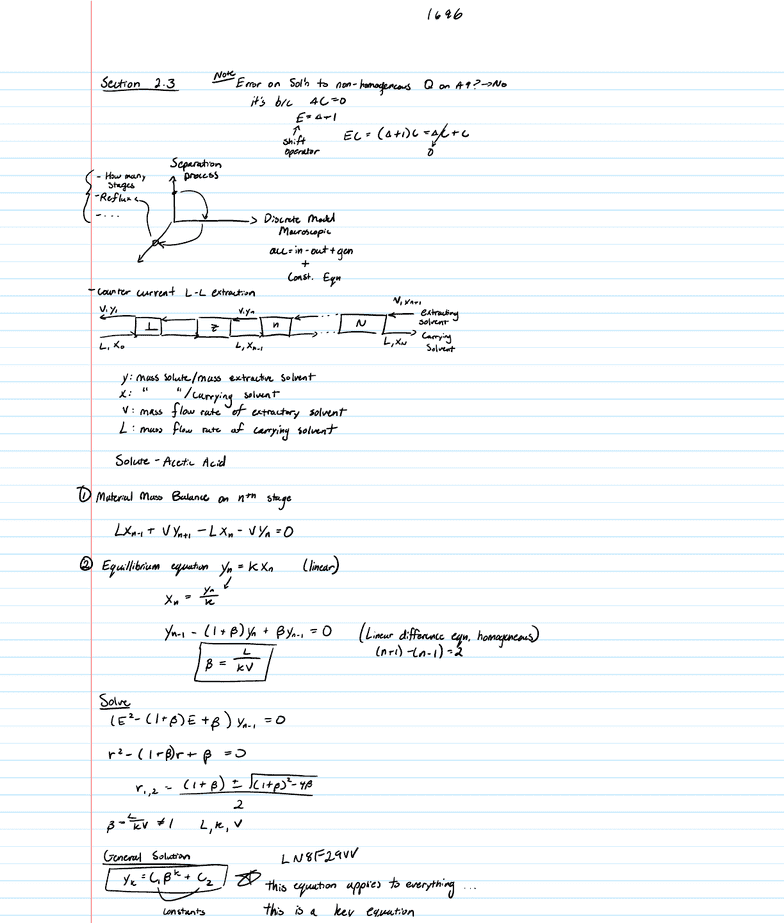 1696
Section 2.3 Note Error on Sol'n to non-homogeneous Q on A9? → No
it's b/c ΔC=0
E = Δ+1
shift operator
EC = (Δ+1)C = ΔC + C
0
Separation process
- How many stages
- Reflux
- ...
Discrete Model
Macroscopic
acc = in - out + gen
+
Const. Eqn
- Counter current L-L extraction
V, y₁ V, yₙ V, yₙ₊₁
1 2 n ... N
extracting solvent
carrying solvent
L, X₀ L, Xₙ₋₁ L, X_N
y: mass solute/mass extractive solvent
x: " "/carrying solvent
V: mass flow rate of extractory solvent
L: mass flow rate of carrying solvent
Solute - Acetic Acid
① Material Mass Balance on nᵗʰ stage
LXₙ₋₁ + VYₙ₊₁ - LXₙ - VYₙ = 0
② Equillibrium equation yₙ = KXₙ (linear)
Xₙ = yₙ/K
yₙ₋₁ - (1+β)yₙ + βyₙ₋₁ = 0 (Linear difference eqn, homogeneous)
(n+1) - (n-1) = 2
β = L/KV
Solve
(E² - (1+β)E + β) yₙ₋₁ = 0
r² - (1+β)r + β = 0
r₁,₂ = ((1+β) ± √((1+β)² - 4β))/2
β = L/KV ≠ 1 L, K, V
General Solution
LN8F29VV
yₖ = C₁βᵏ + C₂
this equation applies to everything ...
constants
this is a key equation